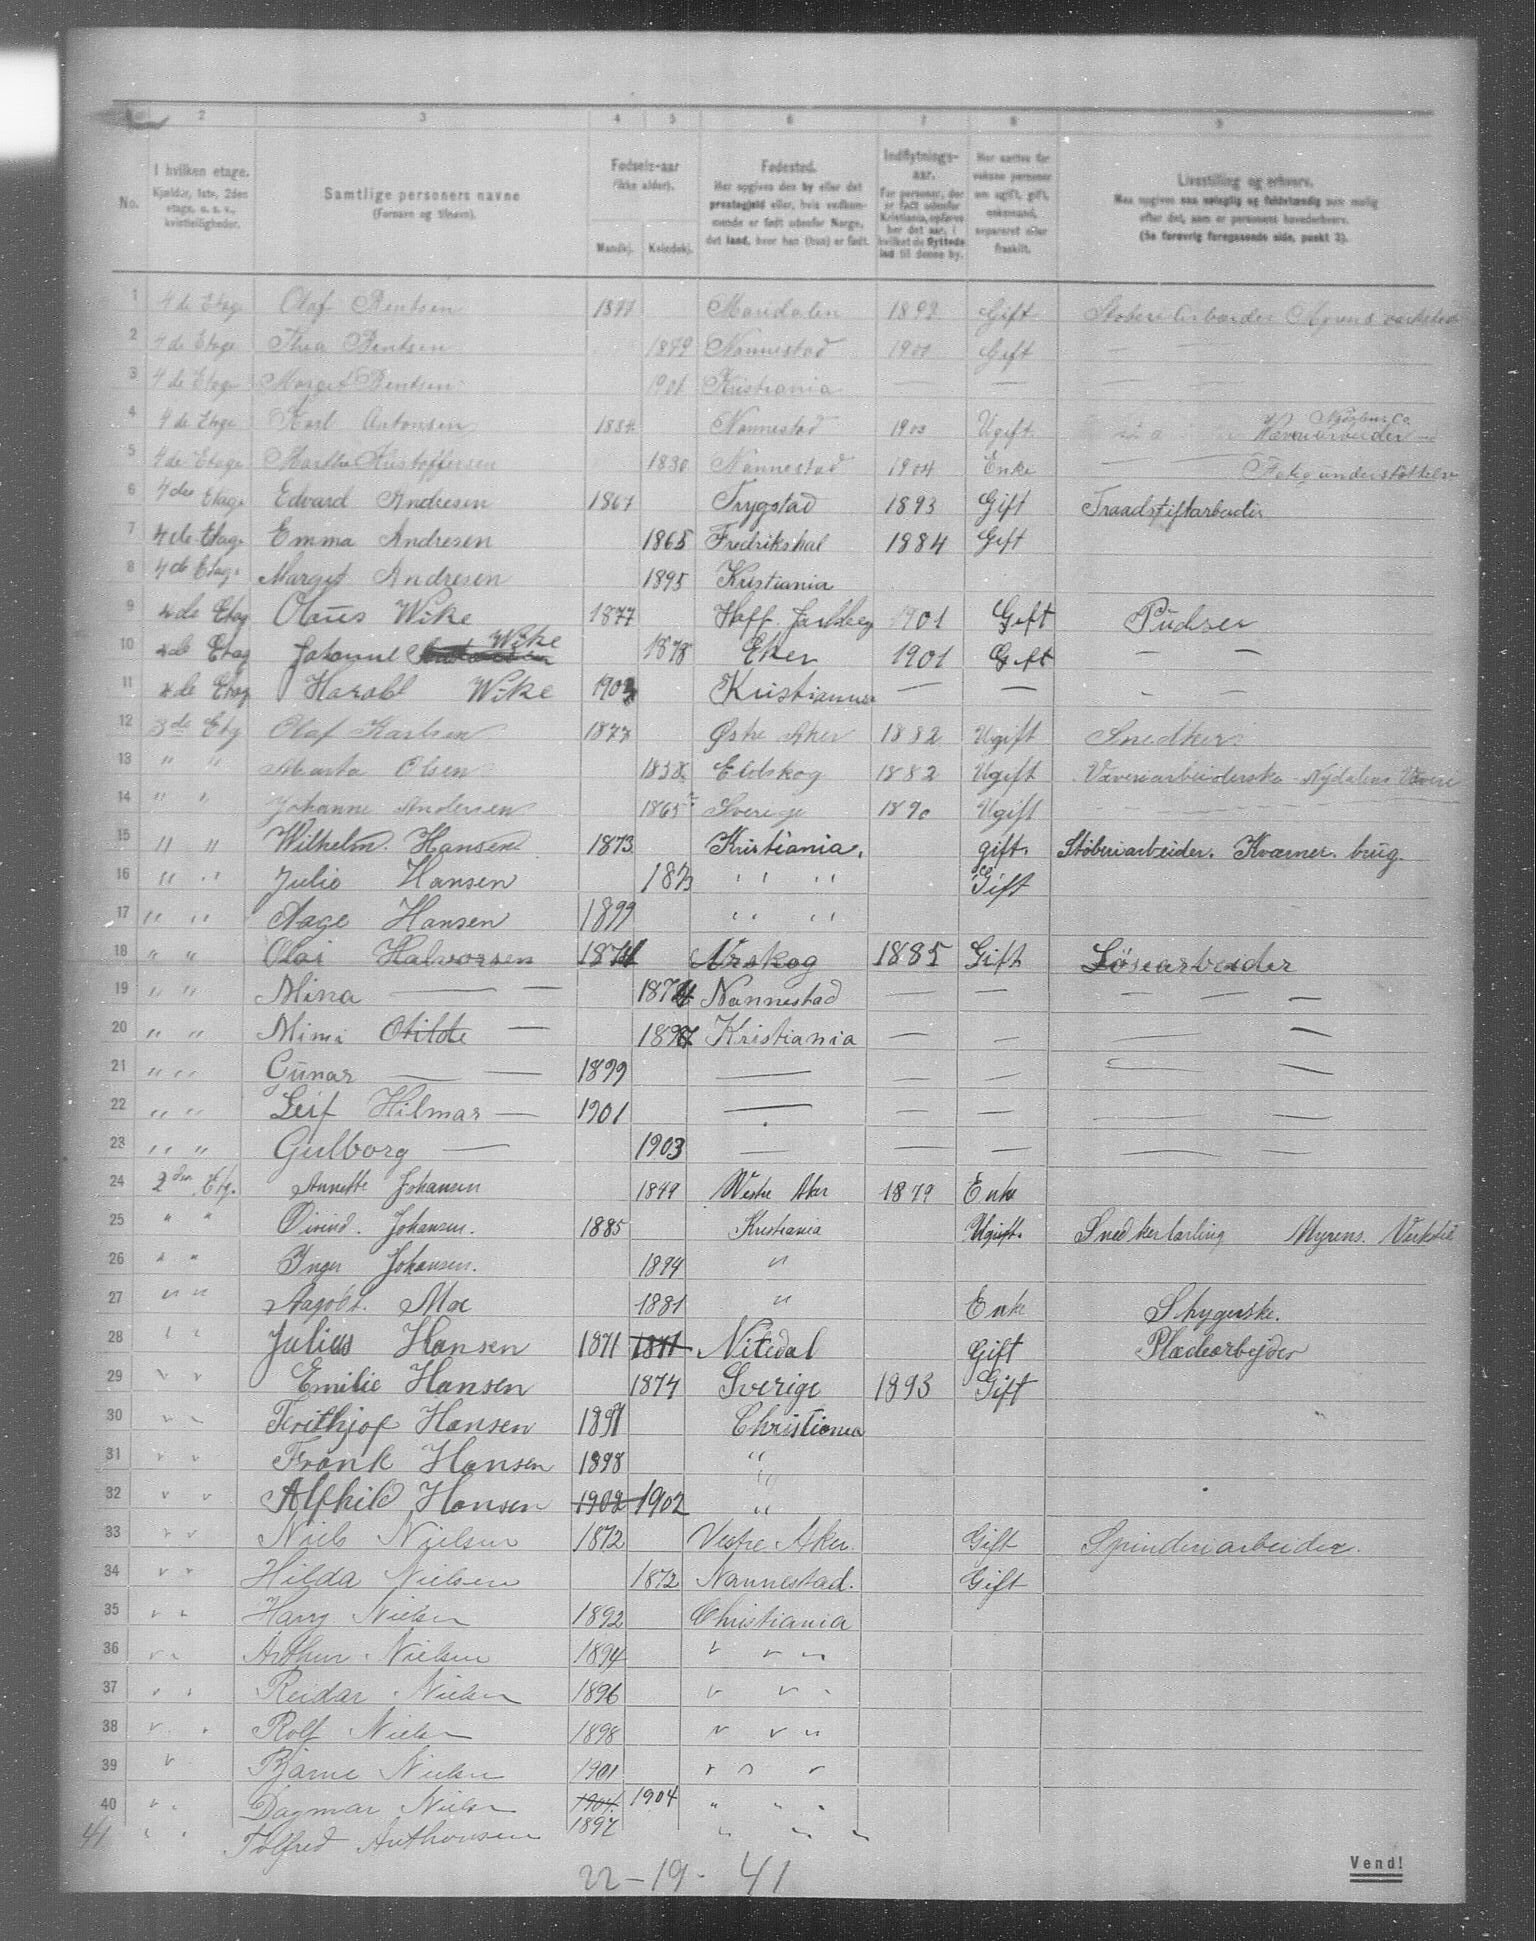 1 2 3 4 5 6 7 8 9
No. I hvilken etage. Kjælder, 1ste, 2den etage, o. s. v., kvistleiligheder. Samtlige personers navne (Fornavn og tilnavn). Fødsels-aar (ikke alder). Mandkj. Kvindekj. Fødested. Her opgives den by eller det præstegjeld eller, hvis vedkommende er født udenfor Norge, det land, hvor han (hun) er født. Indflytnings-aar. For personer, der er født udenfor Kristiania, opføres her det aar, i hvilket de flyttede ind til denne by. Her sættes for voksne personer om ugift, gift, enkemand, separeret eller fraskilt. Livsstilling og erhverv. Maa opgives saa nøiagtig og fuldstændig som mulig efter det, som er personens hovederhverv. (Se forøvrig foregaaende side, punkt 3).
1 4 de Etage Olaf Bentsen 1877 Maridalen 1892 Gift Støberi Arbeider Myrens værksted
2 4 de Etage Thea Bentsen 1879 Nannestad 1901 Gift — —
3 4 de Etage Marget Bentsen 1901 Kristiania — —
4 4 de Etage Karl Antonsen 1884 Nannestad 1903 Ugift
5 4 de Etage Martha Kristoffersen 1830 Nannestad 1904 Enke Fatigunderstøttelse
6 4 de Etage Edvard Andresen 1867 Trygstad 1893 Gift Traadstiftarbeider
7 4 de Etage Emma Andresen 1865 Fredrikshal 1884 Gift
8 4 de Etage Marget Andresen 1895 Kristiania
9 4 de Etag Olaus Wike 1877 Hoff. Jarlsberg 1901 Gift Pudser
10 4 de Etag Johanne Wike 1878 Eker 1901 Gift — —
11 4 de Etag Harald Wike 1903 Kristiania — — — —
12 3 de Etg Olaf Karlsen 1877 Østre Aker 1882 Ugift Snedker
13 " " Marta Olsen 1838 Eidskog 1882 Ugift Væveriarbeiderske Nydalens Væveri
14 " " Johanne Andersen 1865 Sverige 1890 Ugift
15 " " Wilhelm Hansen 1873 Kristiania. gift. Støberiarbeider. Kværner brug.
16 " " Julie Hansen 1873 " " Gift
17 " " Aage Hansen 1899 " "
18 " " Olai Halvorsen 1874 Aurskog 1885 Gift Løsearbeider
19 " " Mina — — 1874 Nannestad — — — — —
20 " " Mimi Otilde — 1897 Kristiania — — —
21 " " Gunar — — 1899 — — — — —
22 " " Leif Hilmar — 1901 — — — — —
23 " " Gulborg — 1903 — — — — —
24 2 den Etg. Annette Johansen 1849 Westre Aker 1879 Enke
25 " " Øivind. Johansen. 1885 Kristiania Ugift. Snedkerlærling Myrens. Verksted
26 " " Inger Johansen. 1894 "
27 " " Aagodt. Moe 1881 " Enke Shygerske.
28 " " Julius Hansen 1871 1871 Nitedal Gift Pladearbejder
29 " " Emilie Hansen 1874 Sverige 1893 Gift
30 " " Frithjof Hansen 1891 Christiania
31 " " Frank Hansen 1898 "
32 " " Alfhild Hansen 1902 1902 "
33 " " Niels Nielsen 1872 Vestre Aker. Gift Spinderiarbeider.
34 " " Hilda Nielsen 1872 Nannestad. Gift
35 " " Harry Nielsen 1892 Christiania
36 " " Arthur Nielsen 1894 " " "
37 " " Reidar Nielsen 1896 " " "
38 " " Rolf Nielsen 1898 " " "
39 " Bjarne Nielsen 1901 " " "
40 " " Dagmar Nielsen 1904. 1904 " " "
41 " " Tolfred Anthonsen 1897 " " "
22 - 19 - 41
Vend!